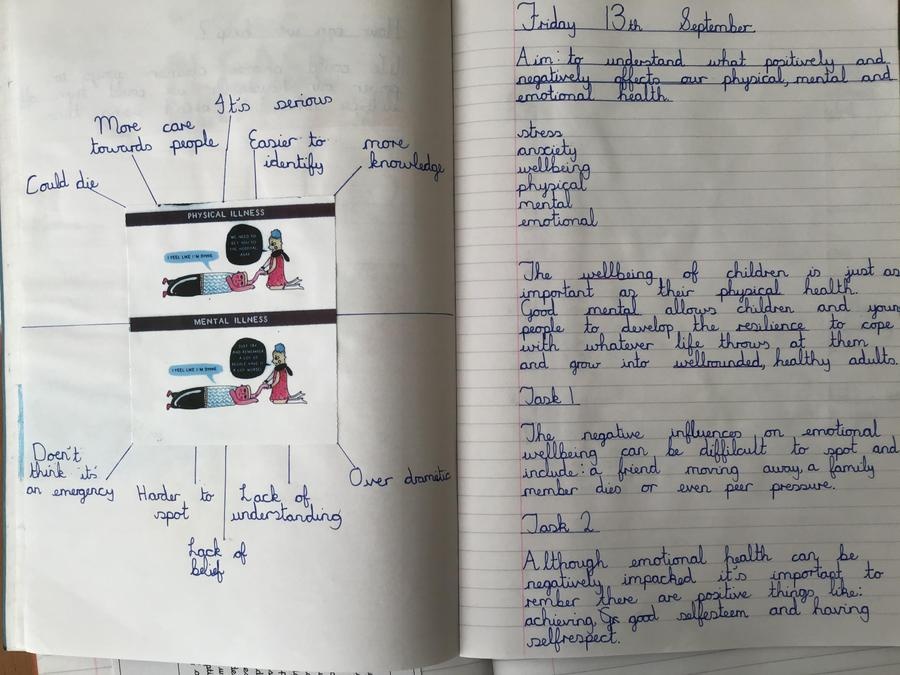 It's serious
More care
towards people
Easier to
identify
more
knowledge
Could die
PHYSICAL ILLNESS
I FEEL LIKE I'M DYING
WE NEED TO
GET YOU TO
THE HOSPITAL
ASAP
MENTAL ILLNESS
I FEEL LIKE I'M DYING
JUST TRY
AND REMEMBER
A LOT OF
PEOPLE HAVE IT
A LOT WORSE!
Doen't
think it's
an emergency
Harder to
spot
Lack of
understanding
Over dramatic
Lack of
belief
Friday 13th September
Aim: to understand what positively and
negatively affects our physical, mental and
emotional health.
stress
anxiety
wellbeing
physical
mental
emotional
The wellbeing of children is just as
important as their physical health.
Good mental allows children and youn
people to develop the resilience to cope
with whatever life throws at them
and grow into wellrounded, healthy adults.
Task 1
The negative influences on emotional
wellbeing can be difficult to spot and
include: a friend moving away, a family
member dies or even peer pressure.
Task 2
Although emotional health can be
negatively impacked it's important to
rember there are positive things like:
achieving, good selfesteem and having
selfrespect.